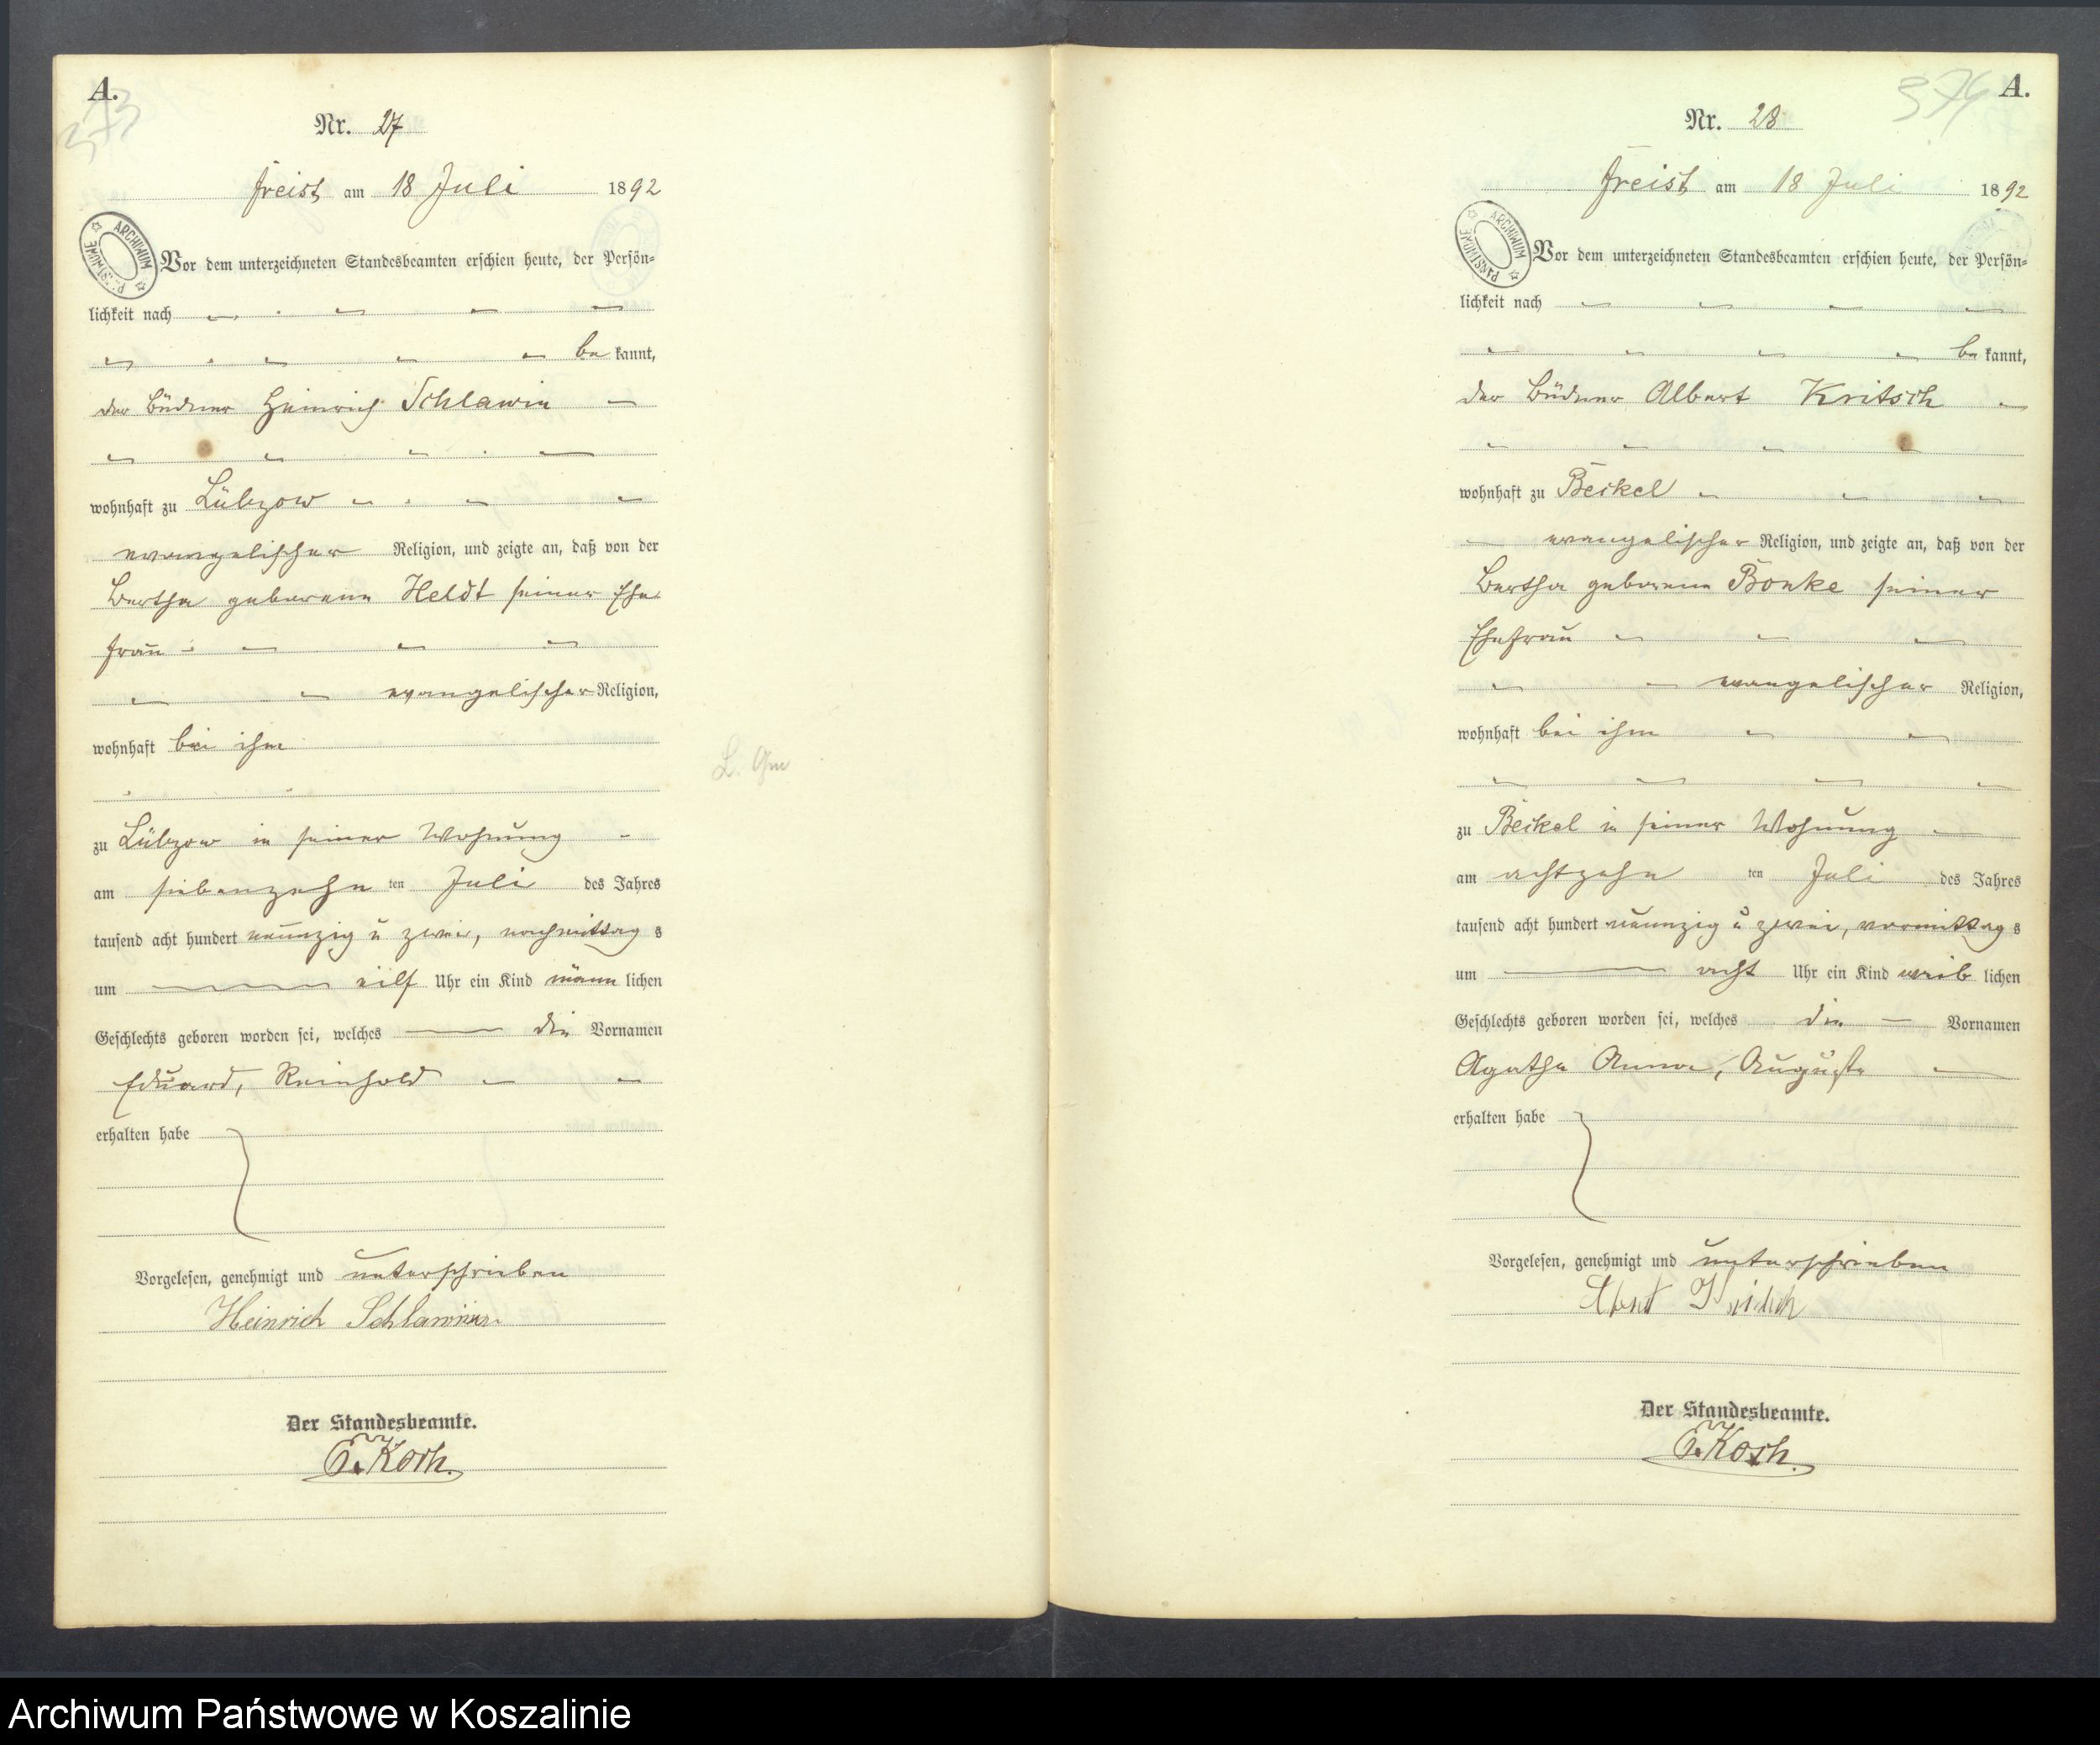 A.
373
Nr. 27
Freist am 18 Juli 1892
ARCHIWUM
Vor dem unterzeichneten Standesbeamten erschien heute, der Persön=
lichkeit nach
be kannt,
der Büdner Heinrich Schlawin
wohnhaft zu Lübzow
evangelischer Religion, und zeigte an, daß von der
Bertha geborene Heldt seiner Ehe
frau
evangelischer Religion,
wohnhaft bei ihm
zu Lübzow in seiner Wohnung
am siebenzehn ten Juli des Jahres
tausend acht hundert neunzig u zwei, nachmittag s
um eilf Uhr ein Kind männ lichen
Geschlechts geboren worden sei, welches die Vornamen
Eduard, Reinhold
erhalten habe
Vorgelesen, genehmigt und unterschrieben
Heinrich Schlawin
Der Standesbeamte.
E. Koch.
A.
374
Nr. 28
Freist am 18 Juli 1892
ARCHIWUM PAŃSTWOWE
Vor dem unterzeichneten Standesbeamten erschien heute, der Persön=
lichkeit nach
be kannt,
der Büdner Albert Kritsch
wohnhaft zu Beikel
evangelischer Religion, und zeigte an, daß von der
Bertha geborene Bonke seiner
Ehefrau
evangelischer Religion,
wohnhaft bei ihm
zu Beikel in seiner Wohnung
am achtzehn ten Juli des Jahres
tausend acht hundert neunzig u zwei, vormittag s
um acht Uhr ein Kind weib lichen
Geschlechts geboren worden sei, welches die Vornamen
Agathe Anna, Auguste
erhalten habe
Vorgelesen, genehmigt und unterschrieben
Der Standesbeamte.
E. Koch.
Archiwum Państwowe w Koszalinie